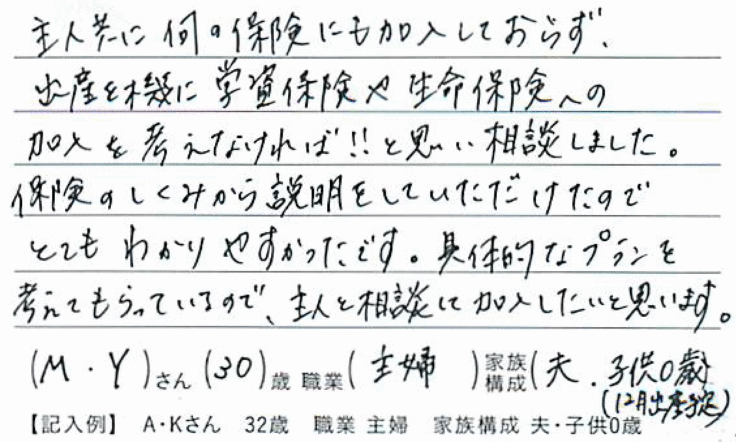 主人共に何の保険にも加入しておらず、
出産を機に学資保険や生命保険への
加入を考えなければ!!と思い相談しました。
保険のしくみから説明をしていただけたので
とてもわかりやすかったです。具体的なプランを
考えてもらっているので、主人と相談して加入したいと思います。
(M・Y)さん (30)歳 職業(主婦)家族構成(夫・子供0歳)
(12月出産予定)
【記入例】 A・Kさん 32歳 職業 主婦 家族構成 夫・子供0歳